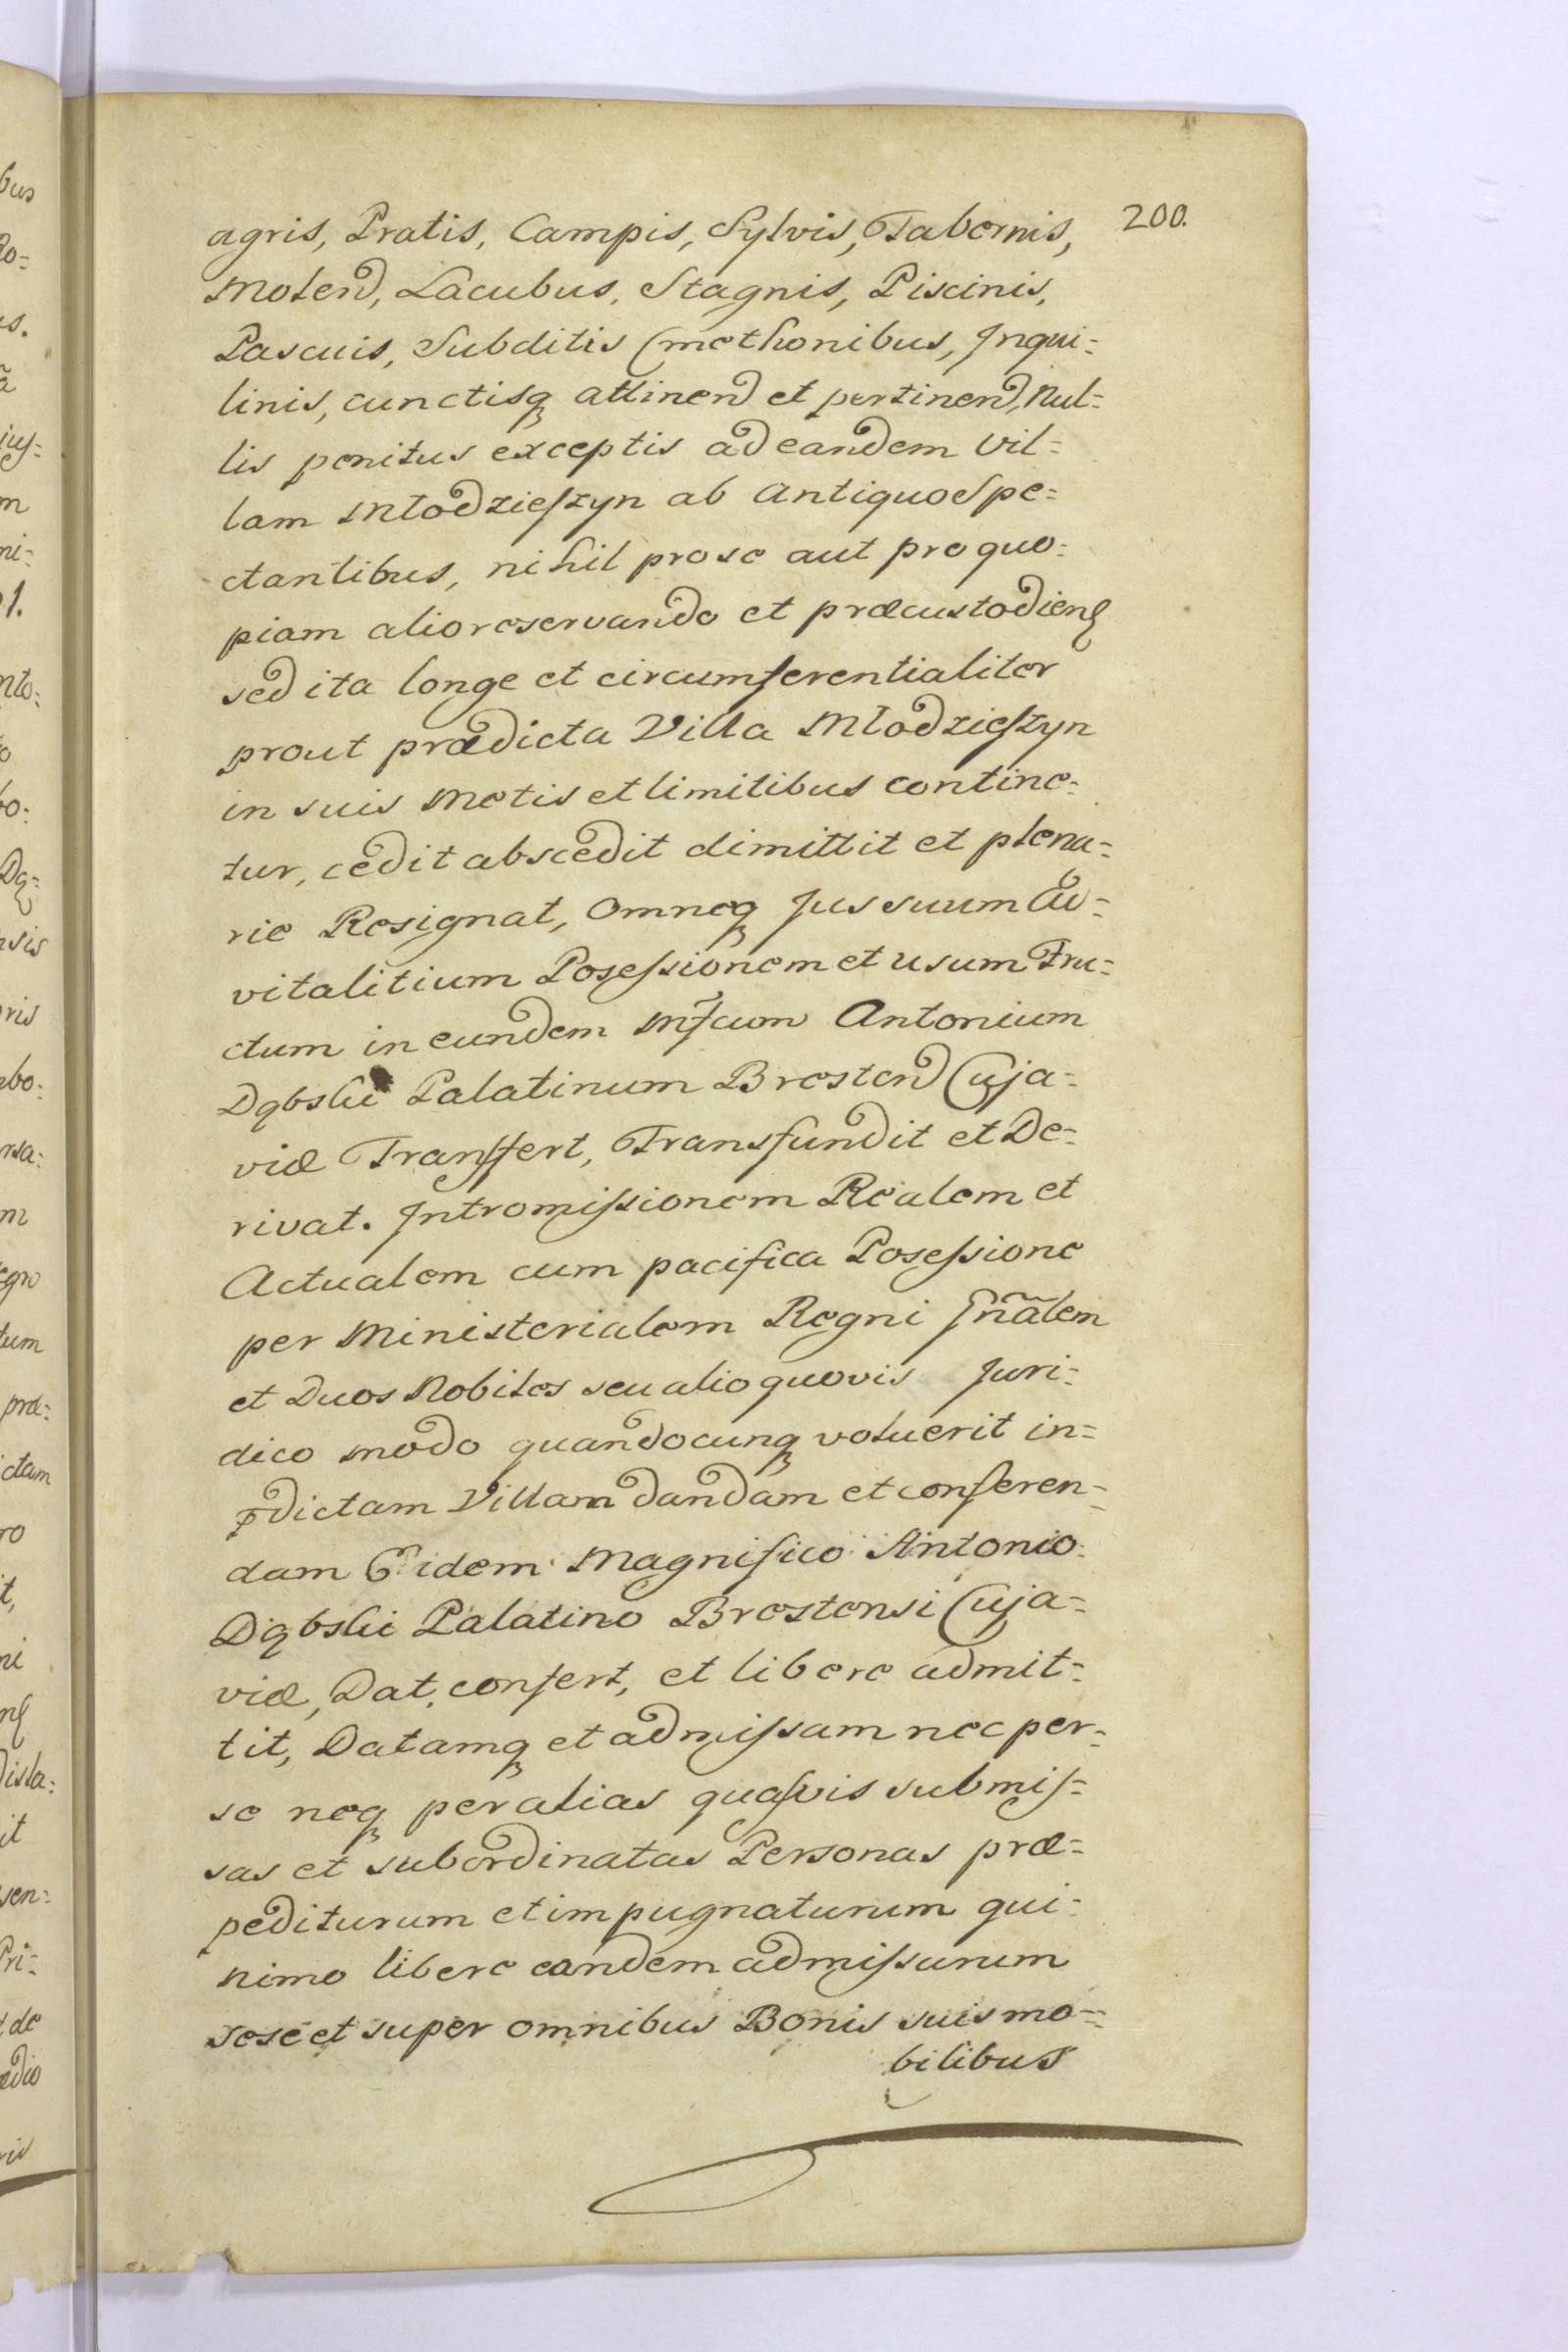 200.
agris, Pratis, Campis, Sylvis, Tabernis,
Molend, Lacubus, Stagnis, Piscinis,
Pascuis, Subditis Cmethonibus, Inqui=
linis, cunctisq attinend et pertinend, Nul=
lis penitus exceptis ad eandem Vil=
lam Młodzieszyn ab Antiquo Spe=
ctantibus, nihil pro se aut pro quo=
piam alio reservando et præcustodien
sed ita longe et circumferentialiter
prout prædicta Villa Młodzieszyn
in suis Metis et limitibus contine=
tur, cedit abscedit dimittit et plena=
rie Resignat, Omneq Jus suum Ad=
vitalitium Posessionem et usum Fru=
ctum in eundem Mfcum Antonium
Dąbski Palatinum Brestend Cuja=
viæ Transfert, Transfundit et De=
rivat. Intromissionem Realem et
Actualem cum pacifica Posessione
per Ministerialem Regni Gnãlem
et Duos Nobiles seu alio quovis Juri=
dico modo quandocunq voluerit in=
pdictam Villam dandam et conferen=
dam Eidem Magnifico Antonio
Dąbski Palatino Brestensi Cuja=
viæ, Dat, confert, et libere admit=
tit, Datamq et admissam nec per=
se neq per alias quasvis submis=
sas et subordinatas Personas præ=
pediturum et impugnaturum qui=
nimo libere eandem admissurum
sese et super omnibus Bonis suis mo=
bilibus